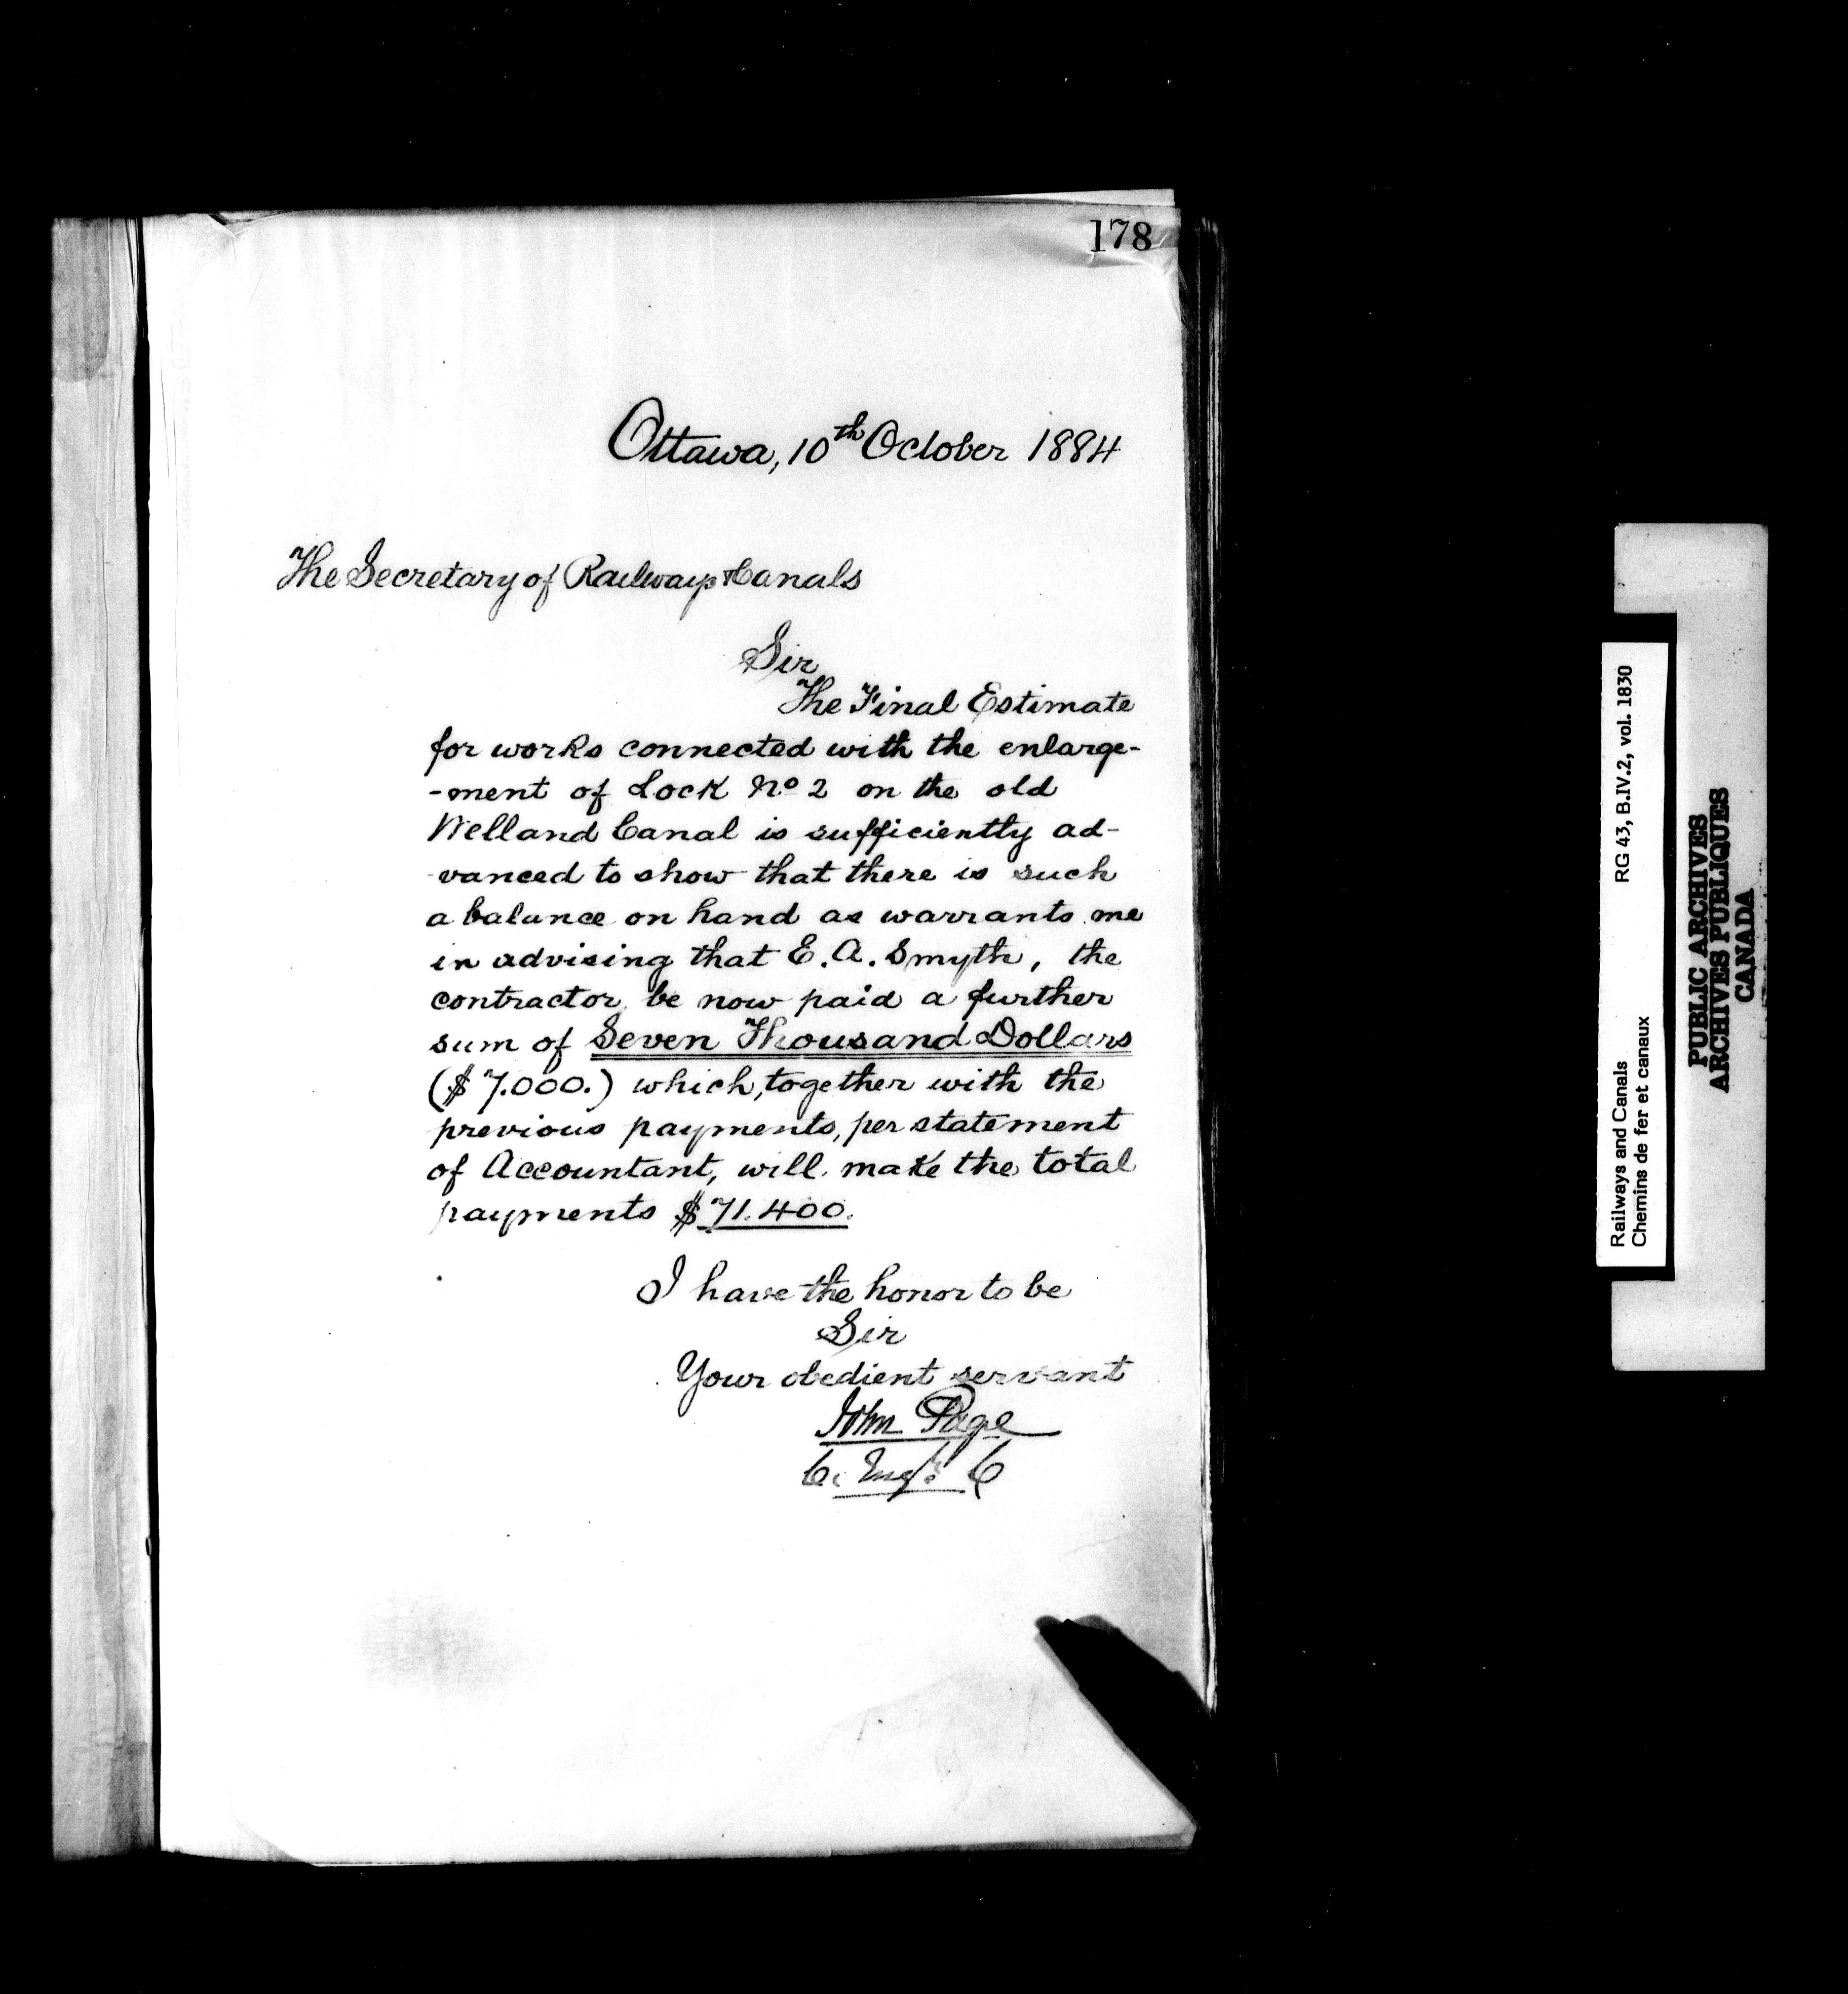 178
Ottawa, 10th October 1884
The Secretary of Railways & Canals
Sir
The Final Estimate
for works connected with the enlarge-
-ment of Lock No 2 on the old
Welland Canal is sufficiently ad-
-vanced to show that there is such
a balance on hand as warrants me
in advising that E. A. Smyth, the
contractor, be now paid a further
sum of Seven Thousand Dollars
($7.000.) which, together with the
previous payments, per statement
of Accountant, will make the total
payments $71.400.
I have the honor to be
Sir
Your obedient servant
John Page
C. Engr. C
Railways and Canals RG 43, B.IV.2, vol. 1830
Chemins de fer et canaux
PUBLIC ARCHIVES
ARCHIVES PUBLIQUES
CANADA